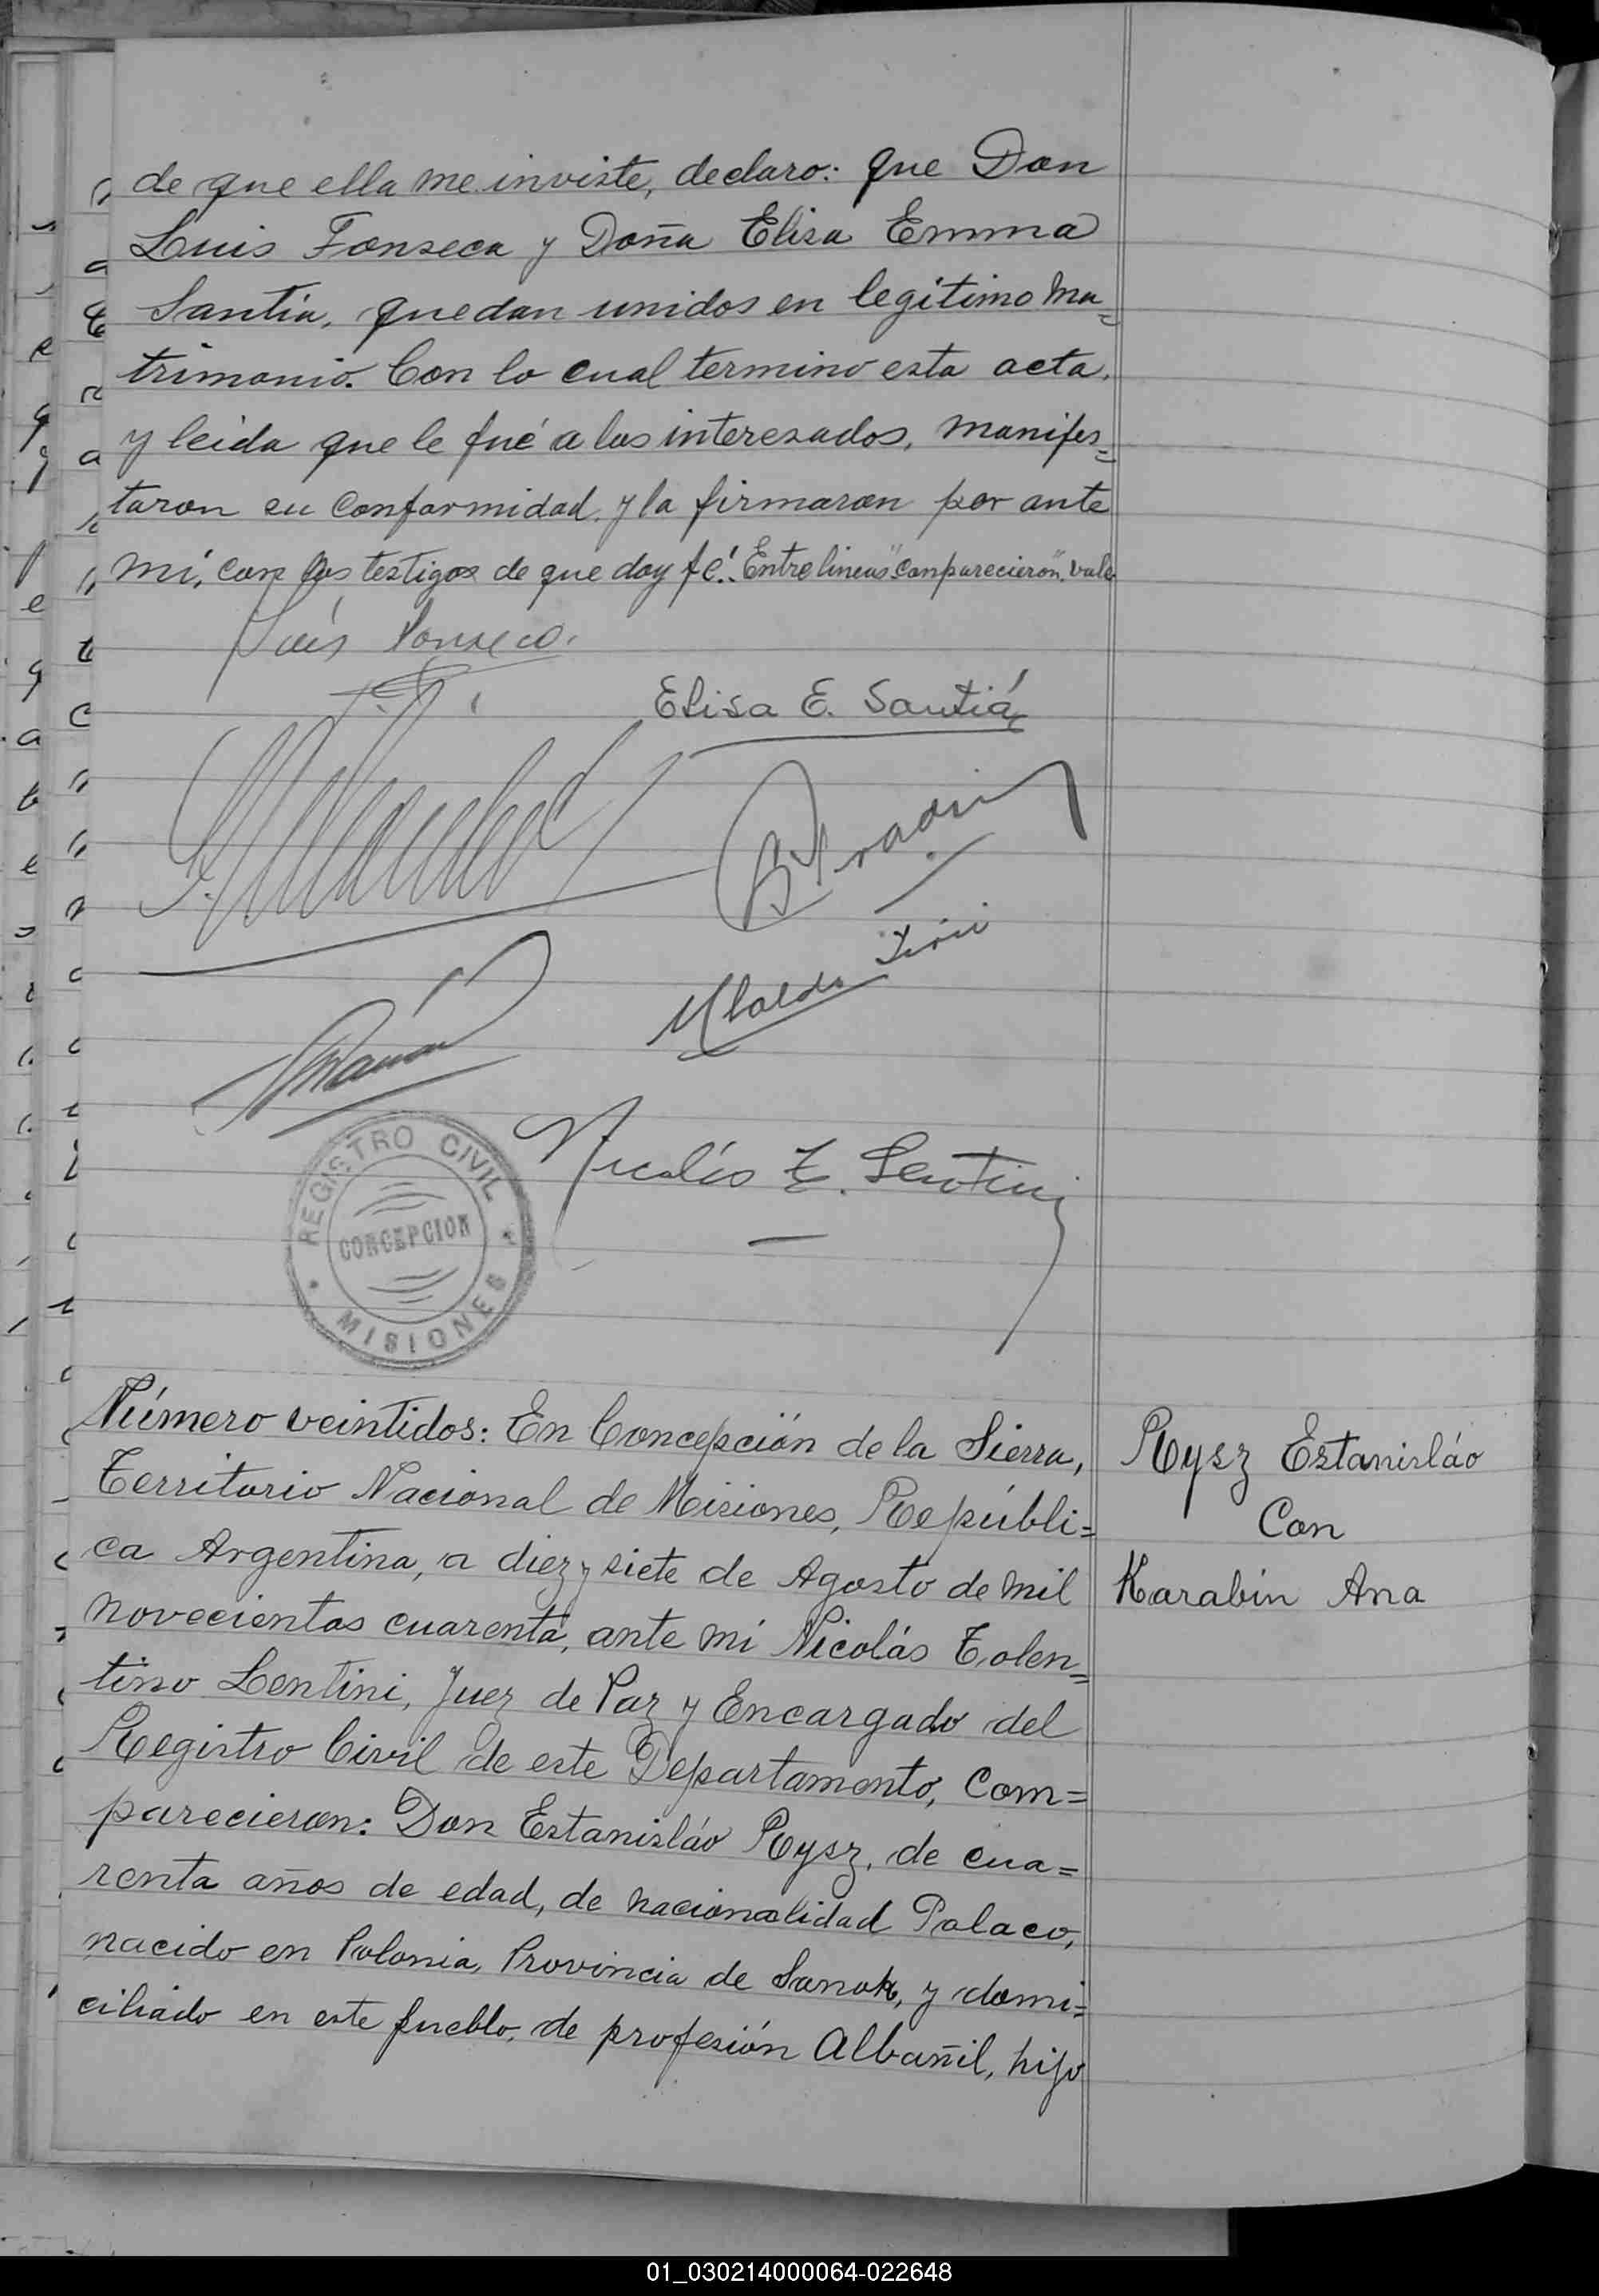 de que ella me inviste, declaro: que Don
Luis Fonseca y Doña Elisa Emma
Santiá, quedan unidos en legitimo ma=
trimonio. Con lo cual termino esta acta,
y leida que le fué a los interesados, manifes=
taron su conformidad y la firmaron por ante
mi, con los testigos de que doy fé. Entre lineas "comparecieron" vale
Luis Fonseca.
Elisa E. Santiá
Ubaldo
REGISTRO CIVIL
CONCEPCION
MISIONES
Nicolás T. Lentini
Número veintidos: En Concepción de la Sierra,
Territorio Nacional de Misiones, Repúbli=
ca Argentina, a diez y siete de Agosto de mil
novecientos cuarenta, ante mi Nicolás Tolen=
tino Lentini, Juez de Paz y Encargado del
Registro Civil de este Departamento, Com=
parecieron: Don Estanisláo Rysz, de cua=
renta años de edad, de nacionalidad Polaco,
nacido en Polonia, Provincia de Sanok, y domi=
ciliado en este pueblo, de profesión Albañil, hijo
Rysz Estanisláo
Con
Karabin Ana
01_030214000064-022648